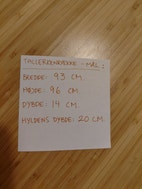 TALLERKENREKKE - MÅL :
BREDDE: 93 CM.
HØJDE: 96 CM.
DYBDE: 14 CM.
HYLDENS DYBDE: 20 CM.